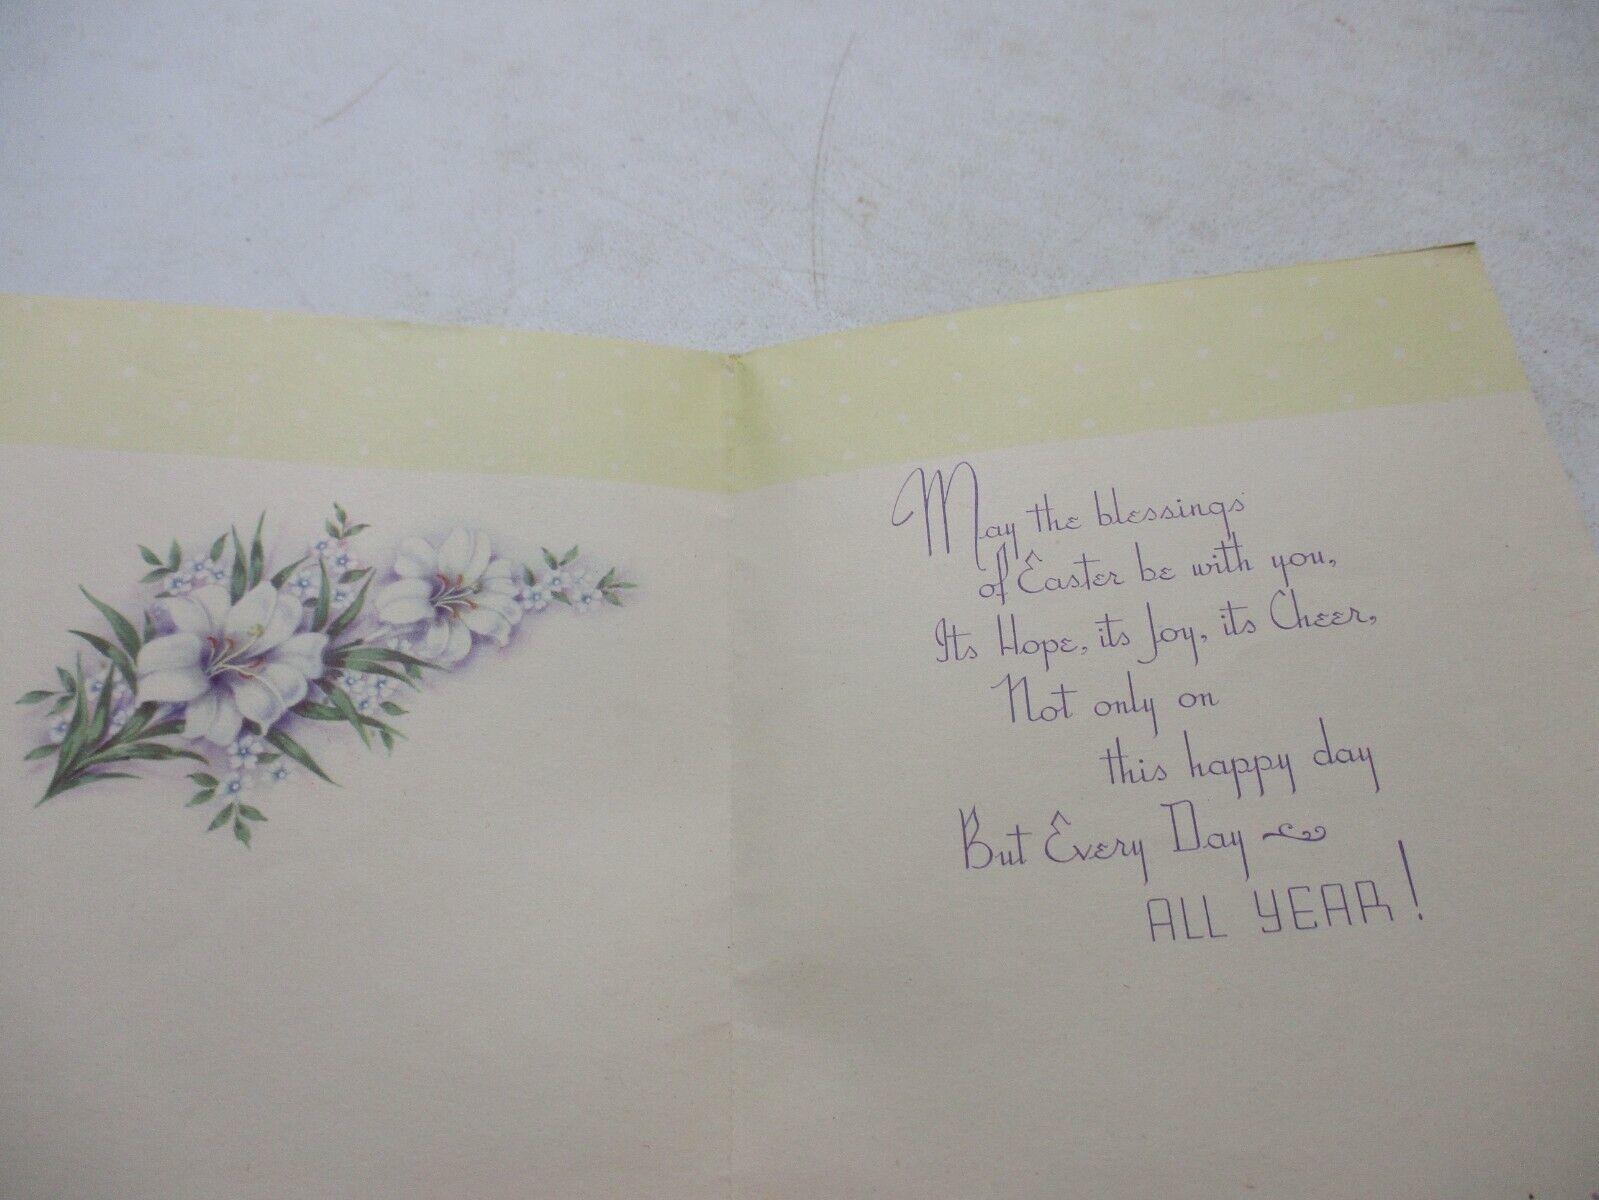 May the blessings
of Easter be with you,
Its Hope, its Joy, its Cheer,
Not only on
this happy day
But Every Day ~
ALL YEAR!